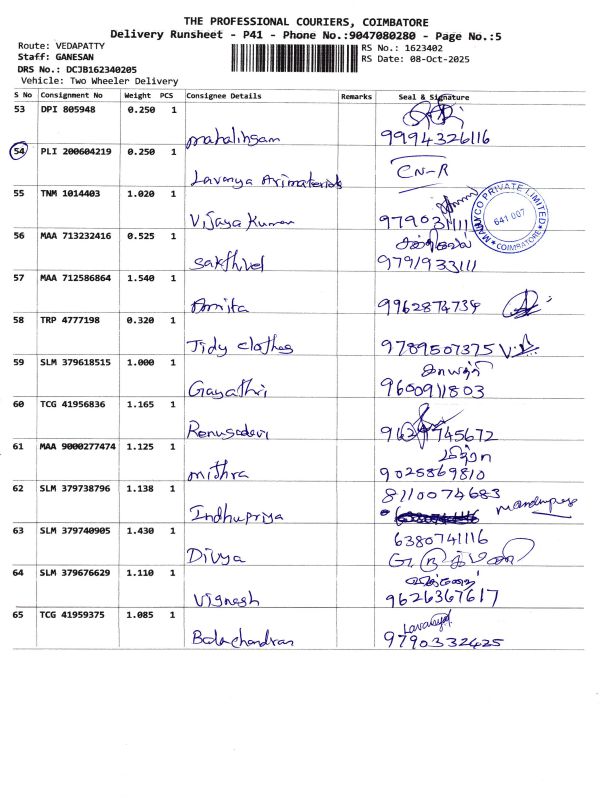 THE PROFESSIONAL COURIERS, COIMBATORE
Delivery Runsheet - P41 - Phone No.:9047080280 - Page No.:5
Route: VEDAPATTY
RS No.: 1623402
Staff: GANESAN
RS Date: 08-Oct-2025
DRS No.: DCJB162340205
Vehicle: Two Wheeler Delivery
S No Consignment No Weight PCS Consignee Details Remarks Seal & Signature
53 DPI 805948 0.250 1
mahalingam 9994326116
54 PLI 200604219 0.250 1
CN-R
Lavanya Arimaterials
55 TNM 1014403 1.020 1
Vijaya Kumar 979031111
PRIVATE LIMITED
641 007
COIMBATORE
56 MAA 713232416 0.525 1
சக்திவேல்
Sakthivel 9791933111
57 MAA 712586864 1.540 1
Amita 9962874739
58 TRP 4777198 0.320 1
Tidy clothes 9789507375
59 SLM 379618515 1.000 1
காயத்ரி
Gayathri 9600911803
60 TCG 41956836 1.165 1
Renugadevi 745672
61 MAA 9000277474 1.125 1
மித்ரா
mithra 9025869810
62 SLM 379738796 1.138 1
8110074683
Indhupriya
63 SLM 379740905 1.430 1
6380741116
Divya
64 SLM 379676629 1.110 1
விக்னேஷ்
Vignesh 9626367617
65 TCG 41959375 1.085 1
Balachandran 9790332425